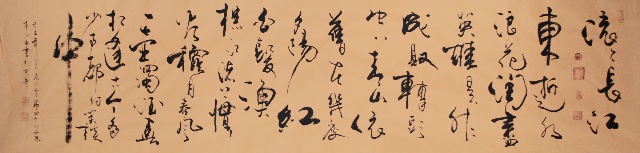 滚〻長江
東逝水
浪花淘盡
英雄是非
成敗轉頭
空青山依
舊在幾度
夕陽紅
白髮漁
樵江渚上慣
看秋月春風
一壺濁酒喜
相逢古今多
少事都付笑談
中